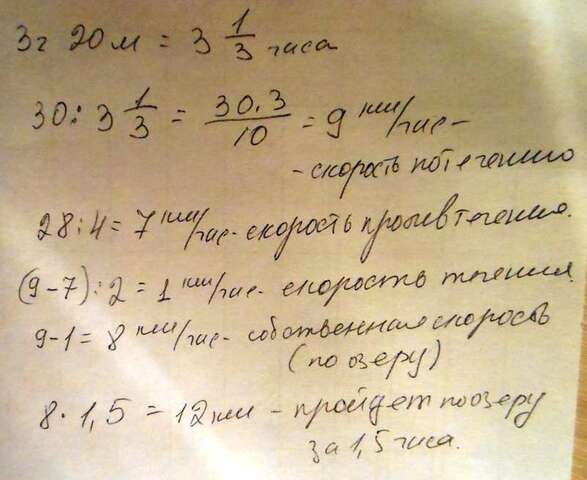 3ч 20м = 3 1/3 часа
30 : 3 1/3 = 30·3/10 = 9 км/час -
- скорость по течению
28:4 = 7 км/час - скорость против течения.
(9-7):2 = 1 км/час - скорость течения.
9-1 = 8 км/час - собственная скорость
(по озеру)
8·1,5 = 12 км - пройдет по озеру
за 1,5 часа.